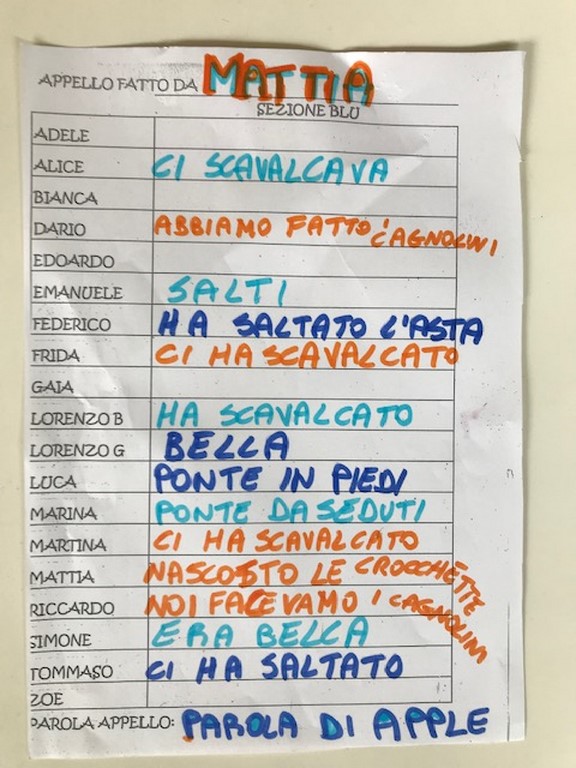 APPELLO FATTO DA MATTIA
SEZIONE BLU
ADELE
ALICE CI SCAVALCAVA
BIANCA
DARIO ABBIAMO FATTO I CAGNOLINI
EDOARDO
EMANUELE SALTI
FEDERICO HA SALTATO L'ASTA
FRIDA CI HA SCAVALCATO
GAIA
LORENZO B HA SCAVALCATO
LORENZO G BELLA
LUCA PONTE IN PIEDI
MARINA PONTE DA SEDUTI
MARTINA CI HA SCAVALCATO
MATTIA NASCOSTO LE CROCCHETTE
RICCARDO NOI FACEVAMO I CAGNOLINI
SIMONE ERA BELLA
TOMMASO CI HA SALTATO
ZOE
PAROLA APPELLO: PAROLA DI APPLE